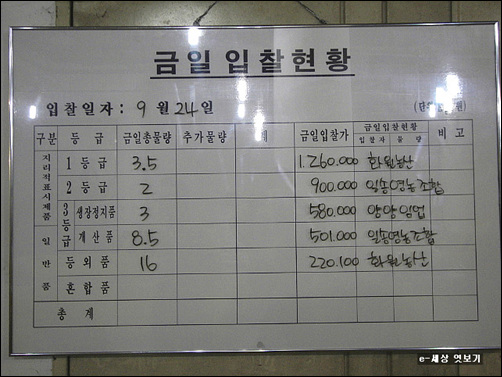 금일입찰현황
입찰일자: 9월 24일
구분 등급 금일총물량 추가물량 계 금일입찰가 금일입찰현황 비고
입찰자 물량
지리적표시제품
1등급 3.5 1,260.000 화원농산
2등급 2 900.000 일송영농조합
3등급 생장정지품 3 580.000 양양임업
개산품 8.5 501.000 일송영농조합
일반품
등외품 16 220.100 화원농산
혼합품
총계
e-세상 엿보기